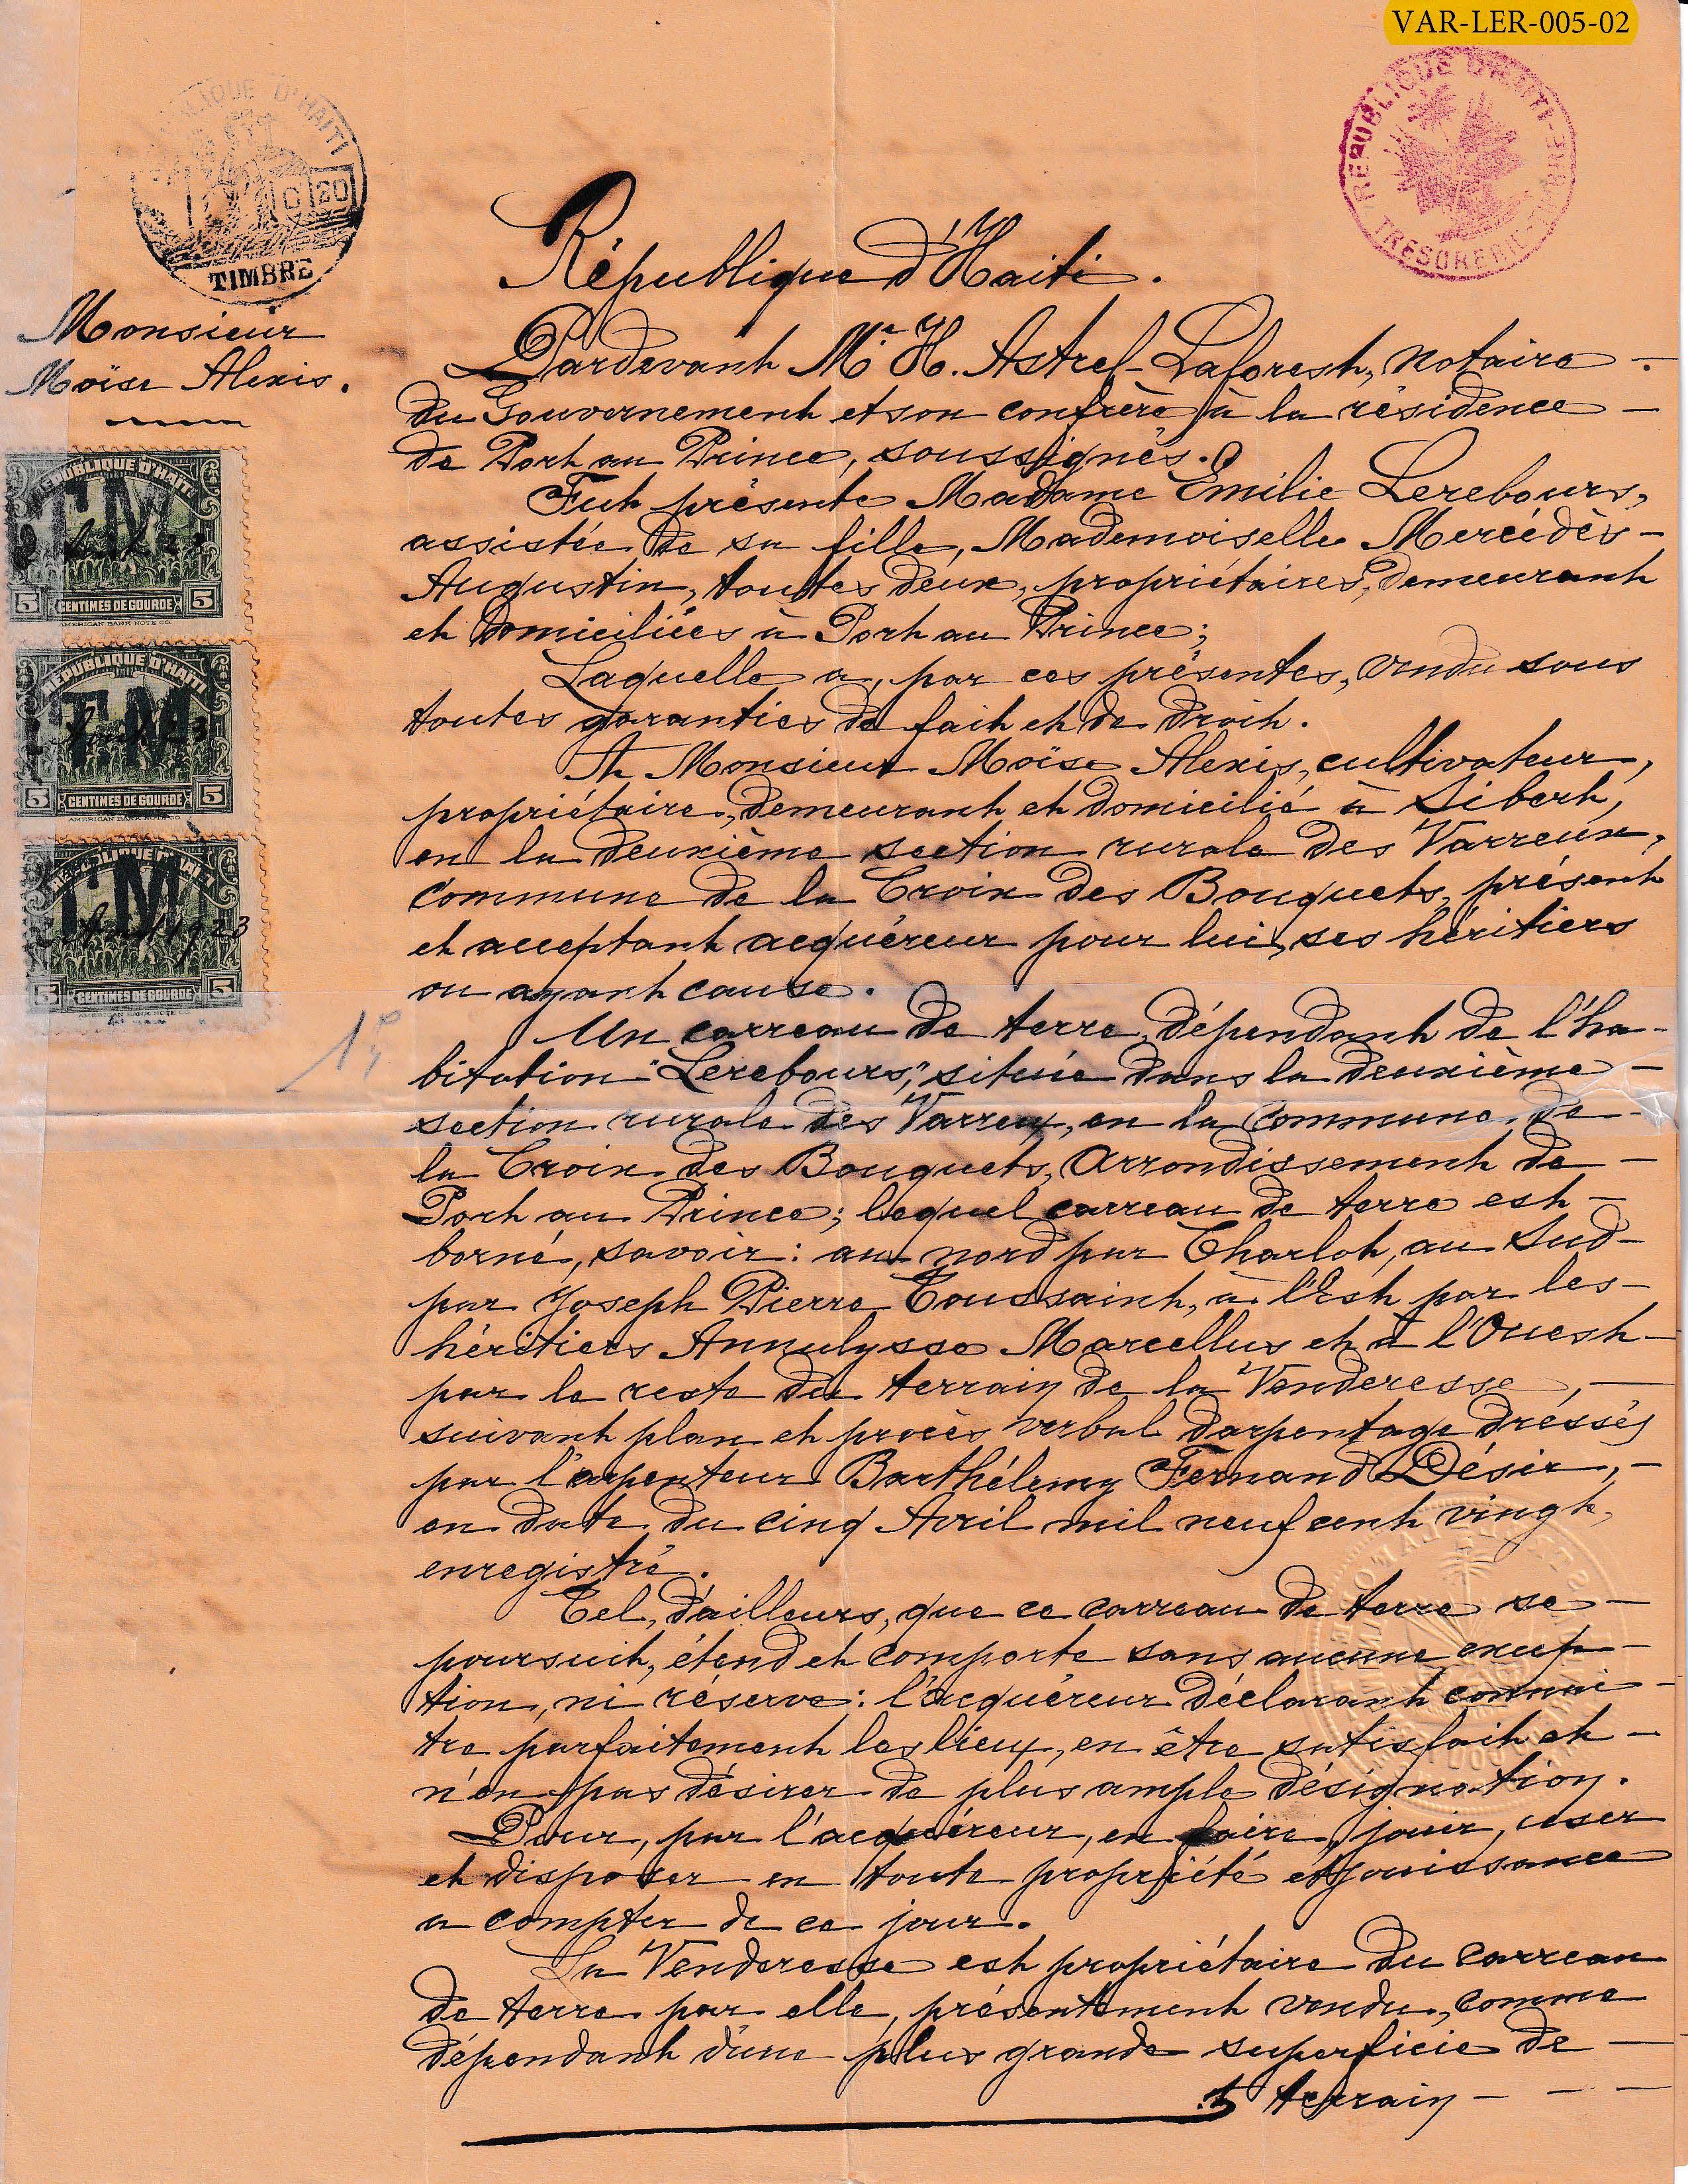 VAR-LER-005-02
RÉPUBLIQUE D'HAITI
C 20
TIMBRE
RÉPUBLIQUE D'HAITI
TRESORERIE
Monsieur
Moïse Alexis.
REPUBLIQUE D'HAITI
TM
5 CENTIMES DE GOURDE 5
AMERICAN BANK NOTE CO.
REPUBLIQUE D'HAITI
TM
5 CENTIMES DE GOURDE 5
AMERICAN BANK NOTE CO
REPUBLIQUE D'HAITI
TM
Avril 1923
5 CENTIMES DE GOURDE 5
AMERICAN BANK NOTE CO
République d'Haiti.
Pardevant Me. H. Astrel-Laforest, Notaire -
du Gouvernement et son confrère à la résidence -
de Port au Prince, soussignés.
Fut présente Madame Emilie Lerebours,
assistée de sa fille, Mademoiselle Mercédès -
Augustin, toutes deux, propriétaires, demeurant
et domiciliées à Port au Prince;
Laquelle a, par ces présentes, vendu sous
toutes garanties de fait et de droit.
A Monsieur Moïse Alexis, cultivateur,
propriétaire, demeurant et domicilié à Sibert,
en la deuxième section rurale des Varreux,
commune de la Croix des Bouquets, présent
et acceptant acquéreur pour lui, ses héritiers
ou ayant cause.
Un carreau de terre, dépendant de l'ha-
bitation "Lerebours", située dans la deuxième -
section rurale des Varreux, en la Commune de -
la Croix des Bouquets, Arrondissement de -
Port au Prince; lequel carreau de terre est -
borné, savoir: au nord par Charlot, au Sud -
par Joseph Pierre Toussaint, à l'Est par les -
héritiers Annulysse Marcellus et à l'Ouest -
par le reste du terrain de la Venderesse, -
suivant plan et procès verbal d'arpentage dréssés
par l'arpenteur Barthélemy Fernand Désir, -
en date du cinq Avril mil neuf cent vingt,
enregistré.
Tel, d'ailleurs, que ce carreau de terre se -
poursuit, étend et comporte sans aucune excep-
tion, ni réserve: l'acquéreur déclarant connai-
tre parfaitement les lieux, en être satisfait et -
n'en pas désirer de plus ample désignation.
Pour, par l'acquéreur, en faire, jouir, user
et disposer en toute propriété et jouissance
a compter de ce jour.
La Venderesse est propriétaire du carreau
de terre par elle, présentement vendu, comme
dépendant d'une plus grande superficie de -
terrain - - -